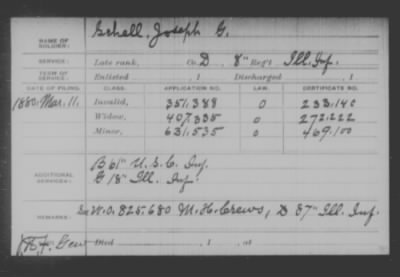 NAME OF SOLDIER: Schell, Joseph G.
SERVICE: Late rank, Co. D, 8" Reg't Ill. Inf.
TERM OF SERVICE: Enlisted , 1 Discharged , 1
DATE OF FILING. CLASS. APPLICATION NO. LAW. CERTIFICATE NO.
1880, Mar. 11, Invalid, 351,388 0 233,140
Widow, 407,335 0 272,222
Minor, 631,535 0 469,100
ADDITIONAL SERVICES: B 61" U.S.C. Inf.
G 18" Ill. Inf.
REMARKS: See W.O. 825,680 M. H. Crews, D 87" Ill. Inf.
Died , 1 , at